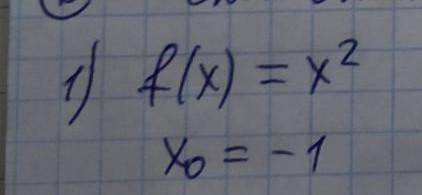 1) f(x) = x²
x₀ = -1